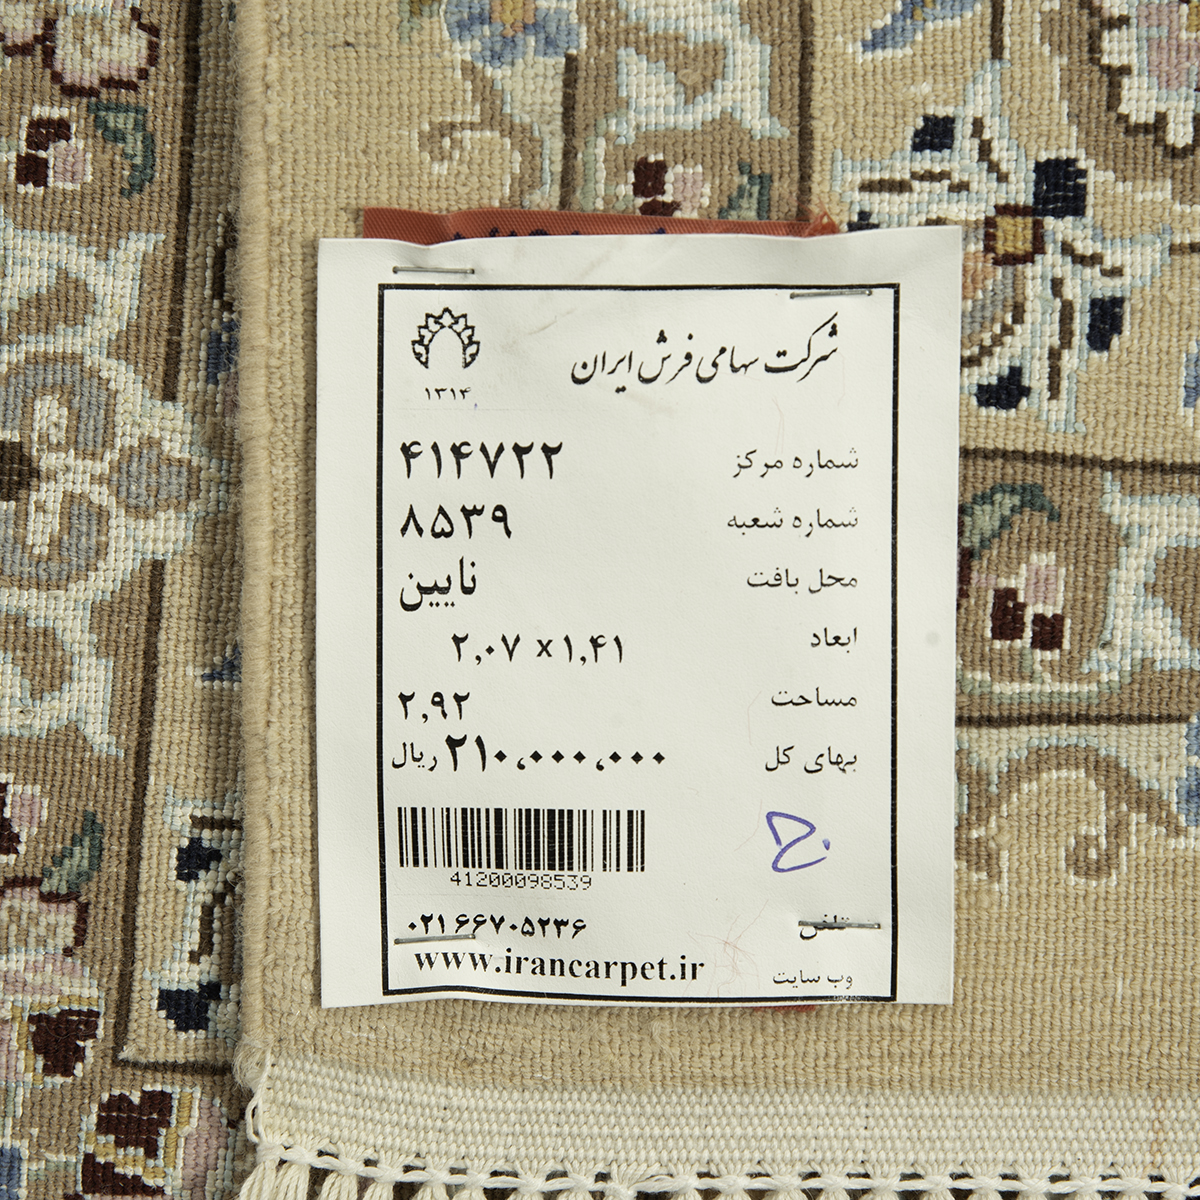 شرکت سهامی فرش ایران
۱۳۱۴
شماره مرکز ۴۱۴۷۲۲
شماره شعبه ۸۵۳۹
محل بافت نایین
ابعاد ۲,۰۷ x ۱,۴۱
مساحت ۲,۹۲
بهای کل ۲۱۰,۰۰۰,۰۰۰ ریال
41200098539
تلفن ۰۲۱ ۶۶۷۰۵۲۳۶
وب سایت www.irancarpet.ir